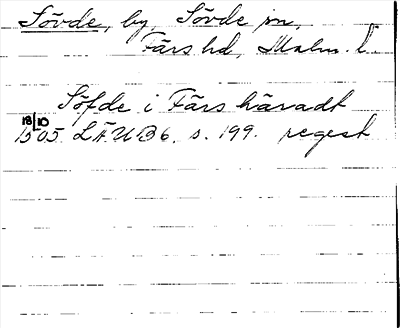 Sövde, by, Sövde sn,
Färs hd, Malm. l.
Söfde i Färs häradt
18/10
1505 LÄUB 6, s. 199. regest